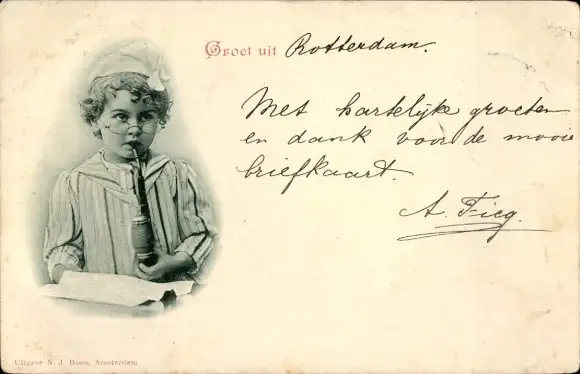 Groet uit Rotterdam.
Met hartelijke groeten
en dank voor de mooie
briefkaart.
A. Fieg.
Uitgave N. J. Boon, Amsterdam